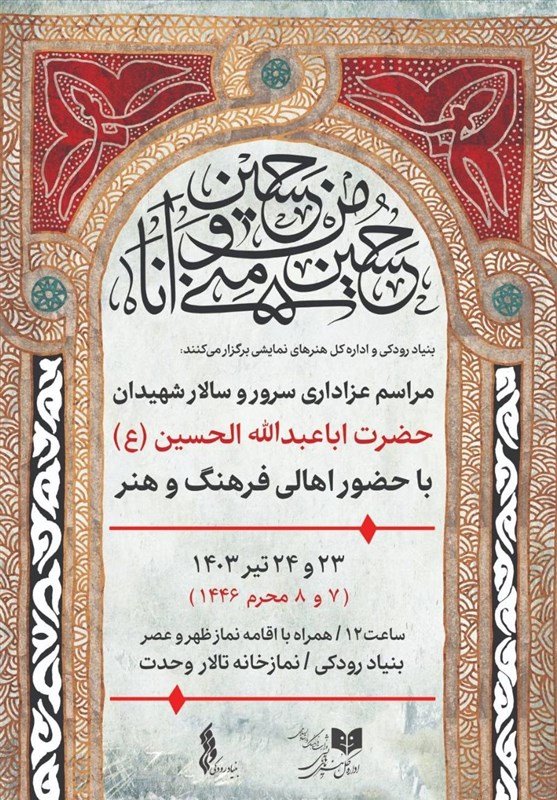 حسین منی و انا من حسین
بنیاد رودکی و اداره کل هنرهای نمایشی برگزار می‌کنند:
مراسم عزاداری سرور و سالار شهیدان
حضرت اباعبدالله الحسین (ع)
با حضور اهالی فرهنگ و هنر
۲۳ و ۲۴ تیر ۱۴۰۳
( ۷ و ۸ محرم ۱۴۴۶ )
ساعت ۱۲ / همراه با اقامه نماز ظهر و عصر
بنیاد رودکی / نمازخانه تالار وحدت
بنیاد رودکی